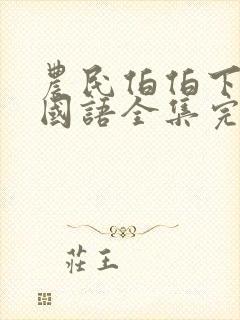 農民伯伯下
國語全集完
莊王